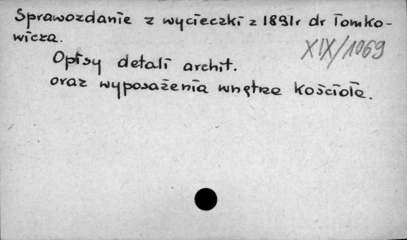 Sprawozdanie z wycieczki z 1891r dr Tomko-
wicza.
XIX/1069
Opisy detali archit.
oraz wyposażenia wnętrza kościoła.